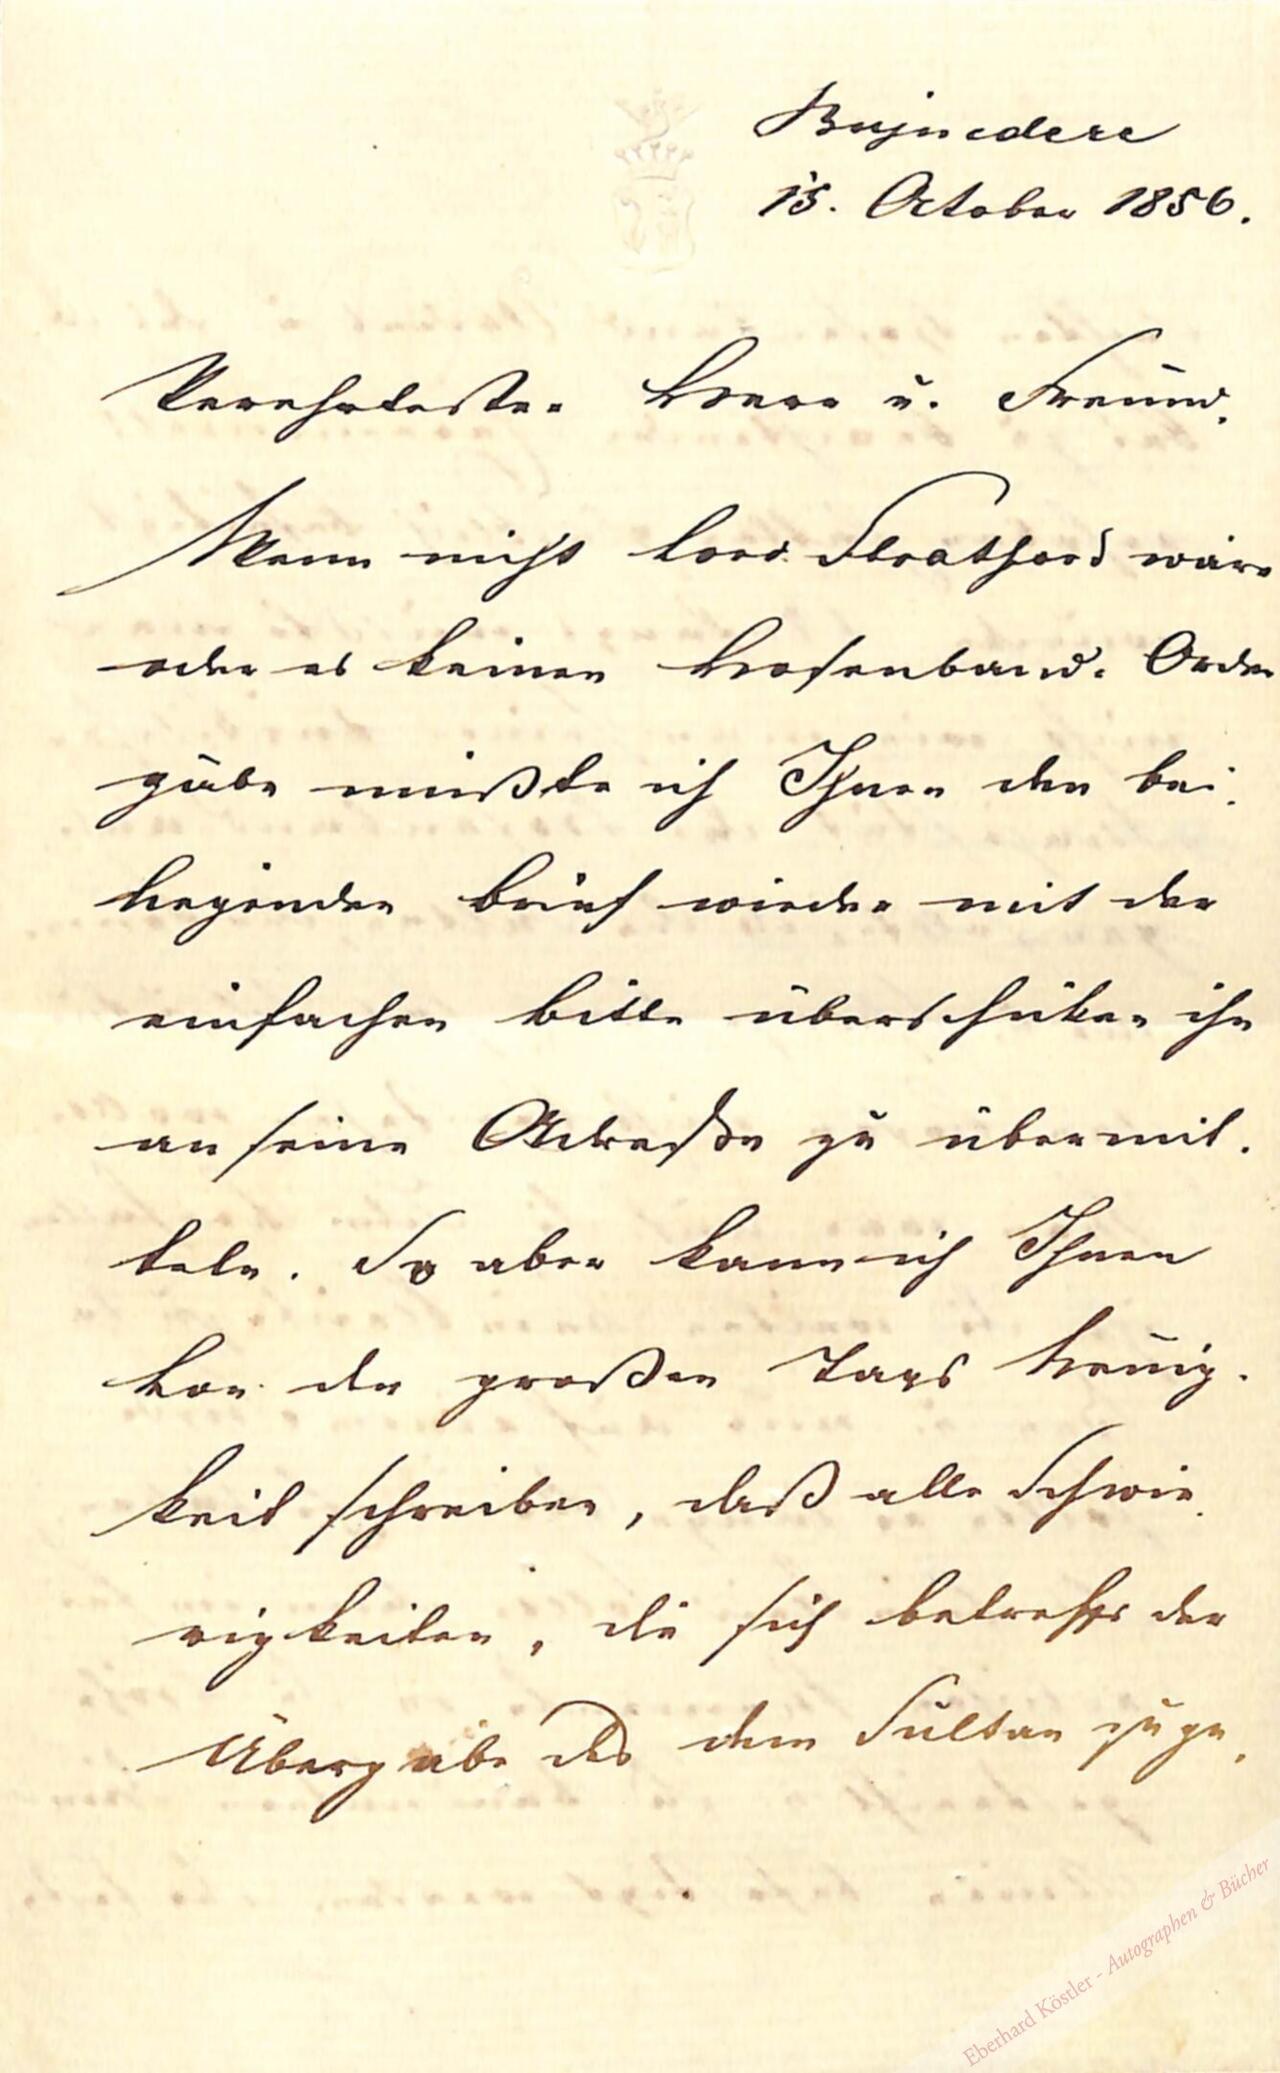 Bujucdere
15. October 1856.
Verehrtester Herr u. Freund,
Wenn nicht Lord Stratford wäre
oder es keinen Hosenband-Orden
gäbe müßte ich Ihnen den bei-
liegenden Brief wieder mit der
einfachen Bitte überschicken ihn
an seine Adresse zu übermit-
teln. So aber kann ich Ihnen
von der großen Tags Neuig-
keit schreiben, daß alle Schwie-
rigkeiten, die sich betreffs der
Übergabe des dem Sultan zuge-
Eberhard Köstler - Autographen & Bücher